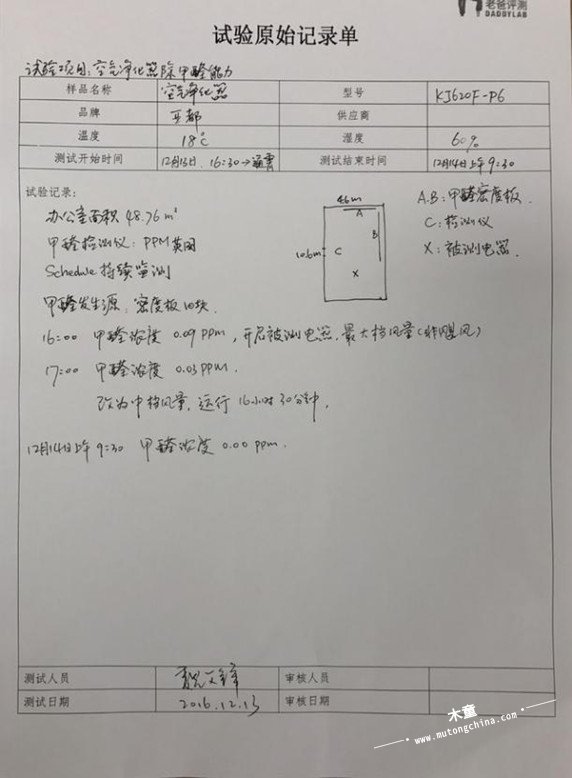 老爸评测
DADDYLAB
试验原始记录单
试验项目:空气净化器除甲醛能力
样品名称 空气净化器 型号 KJ620F-P6
品牌 亚都 供应商
温度 18℃ 湿度 60%
测试开始时间 12月13日. 16:30→ 测试结束时间 12月14日上午9:30
试验记录:
办公室面积 48.76㎡
甲醛检测仪:PPM英国
Schedule 持续监测
甲醛发生源:密度板10块.
16:00 甲醛浓度 0.09 PPM, 开启被测电器,最大档风量(飓风)
17:00 甲醛浓度 0.03 PPM.
改为中档风量,运行16小时30分钟.
12月14日上午9:30 甲醛浓度 0.00 ppm.
46m
A
B
10.6m
C
X
A.B:甲醛密度板.
C:检测仪
X:被测电器.
测试人员 审核人员
测试日期 2016.12.13 审核日期
木童
www.mutongchina.com